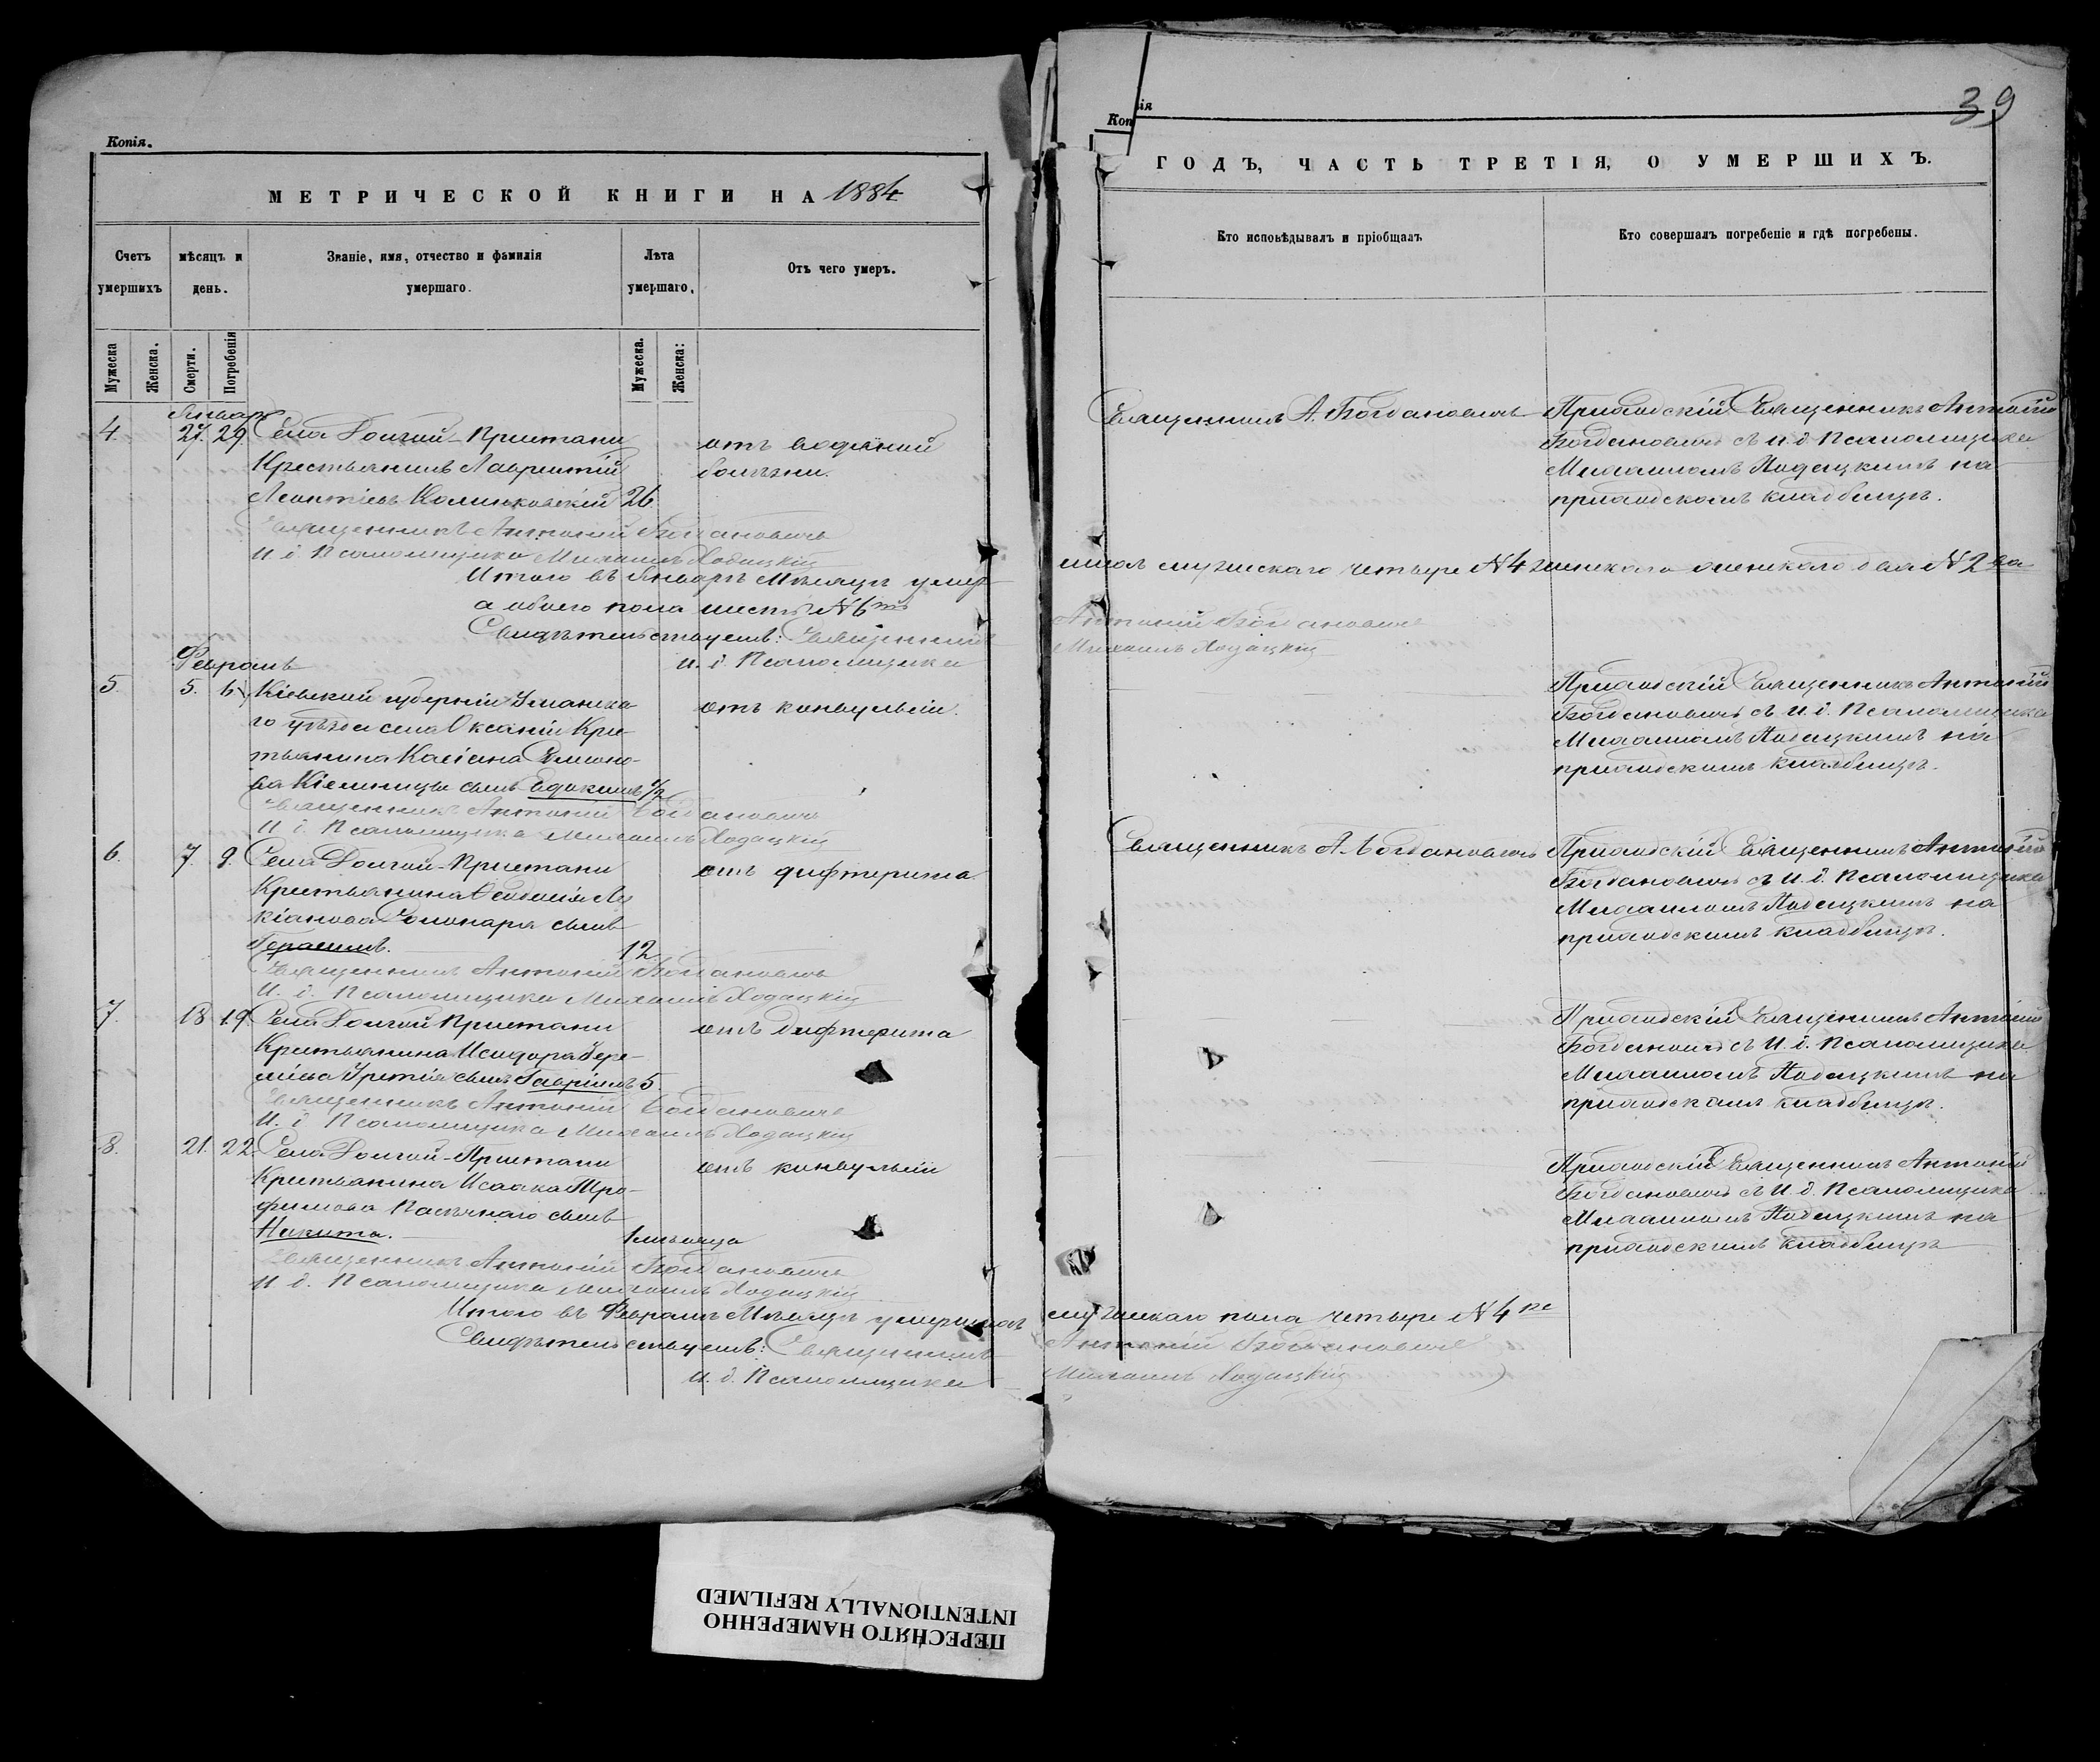 Копія.
МЕТРИЧЕСКОЙ КНИГИ НА 1884
Счетъ умершихъ
мѣсяцъ и день.
Званіе, имя, отчество и фамилія умершаго.
Лѣта умершаго.
Отъ чего умеръ.
Мужеска
Женска.
Смерти.
Погребенія
Мужеска.
Женска:
Январь
4. 27. 29. Села Долгой-Пристани отъ водяной
Крестьянинъ Лаврентій болѣзни.
Леонтіевъ Калинковскій 26
Священникъ Антоній Богдановичъ
И. д. Псаломщика Михаилъ Ходацкій
Итого въ Январѣ Мѣсяцѣ умер-
а обоего пола шесть №6ть
Свидѣтельствуемъ: Священникъ
и. д. Псаломщика
Февраль
5. 5. 6. Кіевской губерніи Уманска-
го уѣзда села Оксаніи Кре- отъ конвульсіи.
тьянина Касіана
сынъ Евдокимъ 1/2
Священникъ Антоній Богдановичъ
И. д. Псаломщика Михаилъ Ходацкій
6. 7. 9. Села Долгой-Пристани отъ дифтерита.
Крестьянина
Пономаря сынъ
Герасимъ. 12
Священникъ Антоній Богдановичъ
И. д. Псаломщика Михаилъ Ходацкій
7. 18 19. Села Долгой Пристани отъ дифтерита
Крестьянина Исидора Іере-
міева сынъ Гавріилъ 5.
Священникъ Антоній Богдановичъ
И. д. Псаломщика Михаилъ Ходацкій
8. 21. 22. Села Долгой-Пристани отъ конвульсіи
Крестьянина Исаака Тро-
фимова Пасѣчнаго сынъ
Никита. 1 мѣсяца
Священникъ Антоній Богдановичъ
И. д. Псаломщика Михаилъ Ходацкій
Итого въ Февралѣ Мѣсяцѣ умершихъ
Свидѣтельствуемъ: Священникъ
И. д. Псаломщика
Коп
ія
39
ГОДЪ, ЧАСТЬ ТРЕТІЯ, О УМЕРШИХЪ.
Кто исповѣдывалъ и пріобщалъ
Кто совершалъ погребеніе и гдѣ погребены.
Священникъ А. Богдановичъ Приходскій Священникъ Антоній
Богдановичъ съ и. д. Псаломщика
Михаиломъ Ходацкимъ на
приходскомъ кладбищѣ.
мужескаго четыре №4 женскаго два №2 ва
Антоній Богдановичъ
Михаилъ Ходацкій
Приходскій Священникъ Антоній
Богдановичъ съ И. д. Псаломщика
Михаиломъ Ходацкимъ на
приходскимъ кладбищѣ.
Священникъ А. Богдановичъ Приходскій Священникъ Антоній
Богдановичъ съ И. д. Псаломщика
Михаиломъ Ходацкимъ на
приходскимъ кладбищѣ.
Приходскій Священникъ Антоній
Богдановичъ съ И. д. Псаломщика
Михаиломъ Ходацкимъ на
приходскомъ кладбищѣ.
Приходскій Священникъ Антоній
Богдановичъ съ И. д. Псаломщика
Михаиломъ Ходацкимъ на
приходскимъ кладбищѣ
мужескаго пола четыре №4 ре
Антоній Богдановичъ
Михаилъ Ходацкій
ПЕРЕСНЯТО НАМЕРЕННО
INTENTIONALLY REFILMED